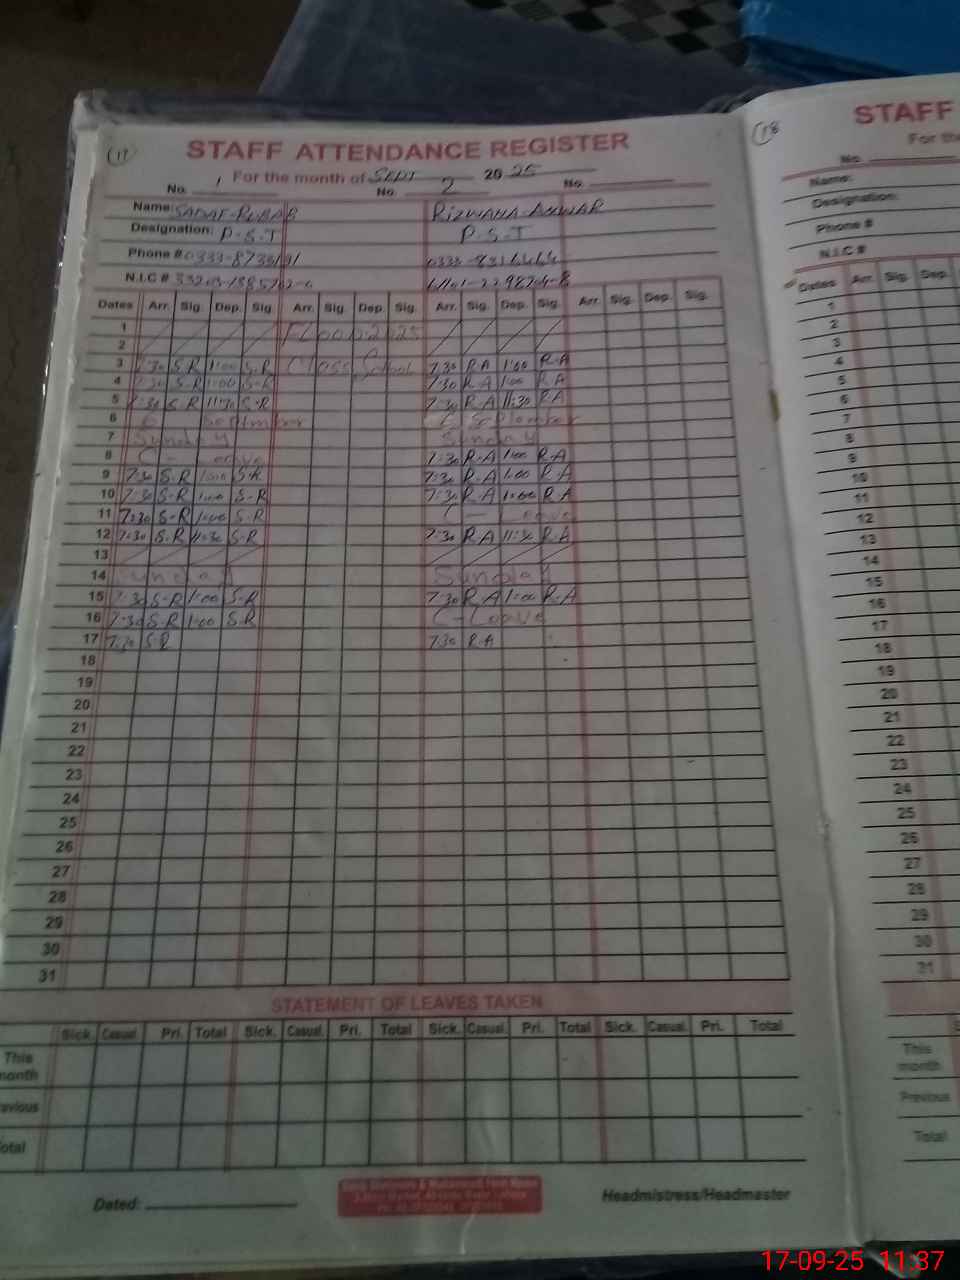 17
STAFF ATTENDANCE REGISTER
For the month of SEPT 2025
No. 1 No. 2 No.
Name: SADAF-RUBAB RIZWANA-ANWAR
Designation: P.S.T P.S.T
Phone # 0333-
N.I.C #
Dates Arr. Sig. Dep. Sig. Arr. Sig. Dep. Sig. Arr. Sig. Dep. Sig. Arr. Sig. Dep. Sig.
1 FLOOD 2025
2
3 7:30 S-R 1:00 S-R School 7:30 R-A 1:00 R-A
4 7:30 S-R 1:00 S-R 7:30 R-A 1:00 R-A
5 7:30 S-R 11:30 S-R 7:30 R-A 11:30 R-A
6 6 6
7 Sunday Sunday
8 C - Leave 7:30 R-A 1:00 R-A
9 7:30 S-R 1:00 S-R 7:30 R-A 1:00 R-A
10 7:30 S-R 1:00 S-R 7:30 R-A 1:00 R-A
11 7:30 S-R 1:00 S-R C - Leave
12 7:30 S-R 11:30 S-R 7:30 R-A 11:30 R-A
13
14 Sunday Sunday
15 7:30 S-R 1:00 S-R 7:30 R-A 1:00 R-A
16 7:30 S-R 1:00 S-R C-Leave
17 7:30 S-R 7:30 R-A
18
19
20
21
22
23
24
25
26
27
28
29
30
31
STATEMENT OF LEAVES TAKEN
Sick. Casual. Pri. Total Sick. Casual. Pri. Total Sick. Casual. Pri. Total Sick. Casual. Pri. Total
This
month
Previous
Total
Dated: Headmistress/Headmaster
18
STAFF
For the
No.
Name:
Designation:
Phone #
N.I.C #
Dates Arr. Sig. Dep.
1
2
3
4
5
6
7
8
9
10
11
12
13
14
15
16
17
18
19
20
21
22
23
24
25
26
27
28
29
30
31
This
month
Previous
Total
17-09-25 11:37